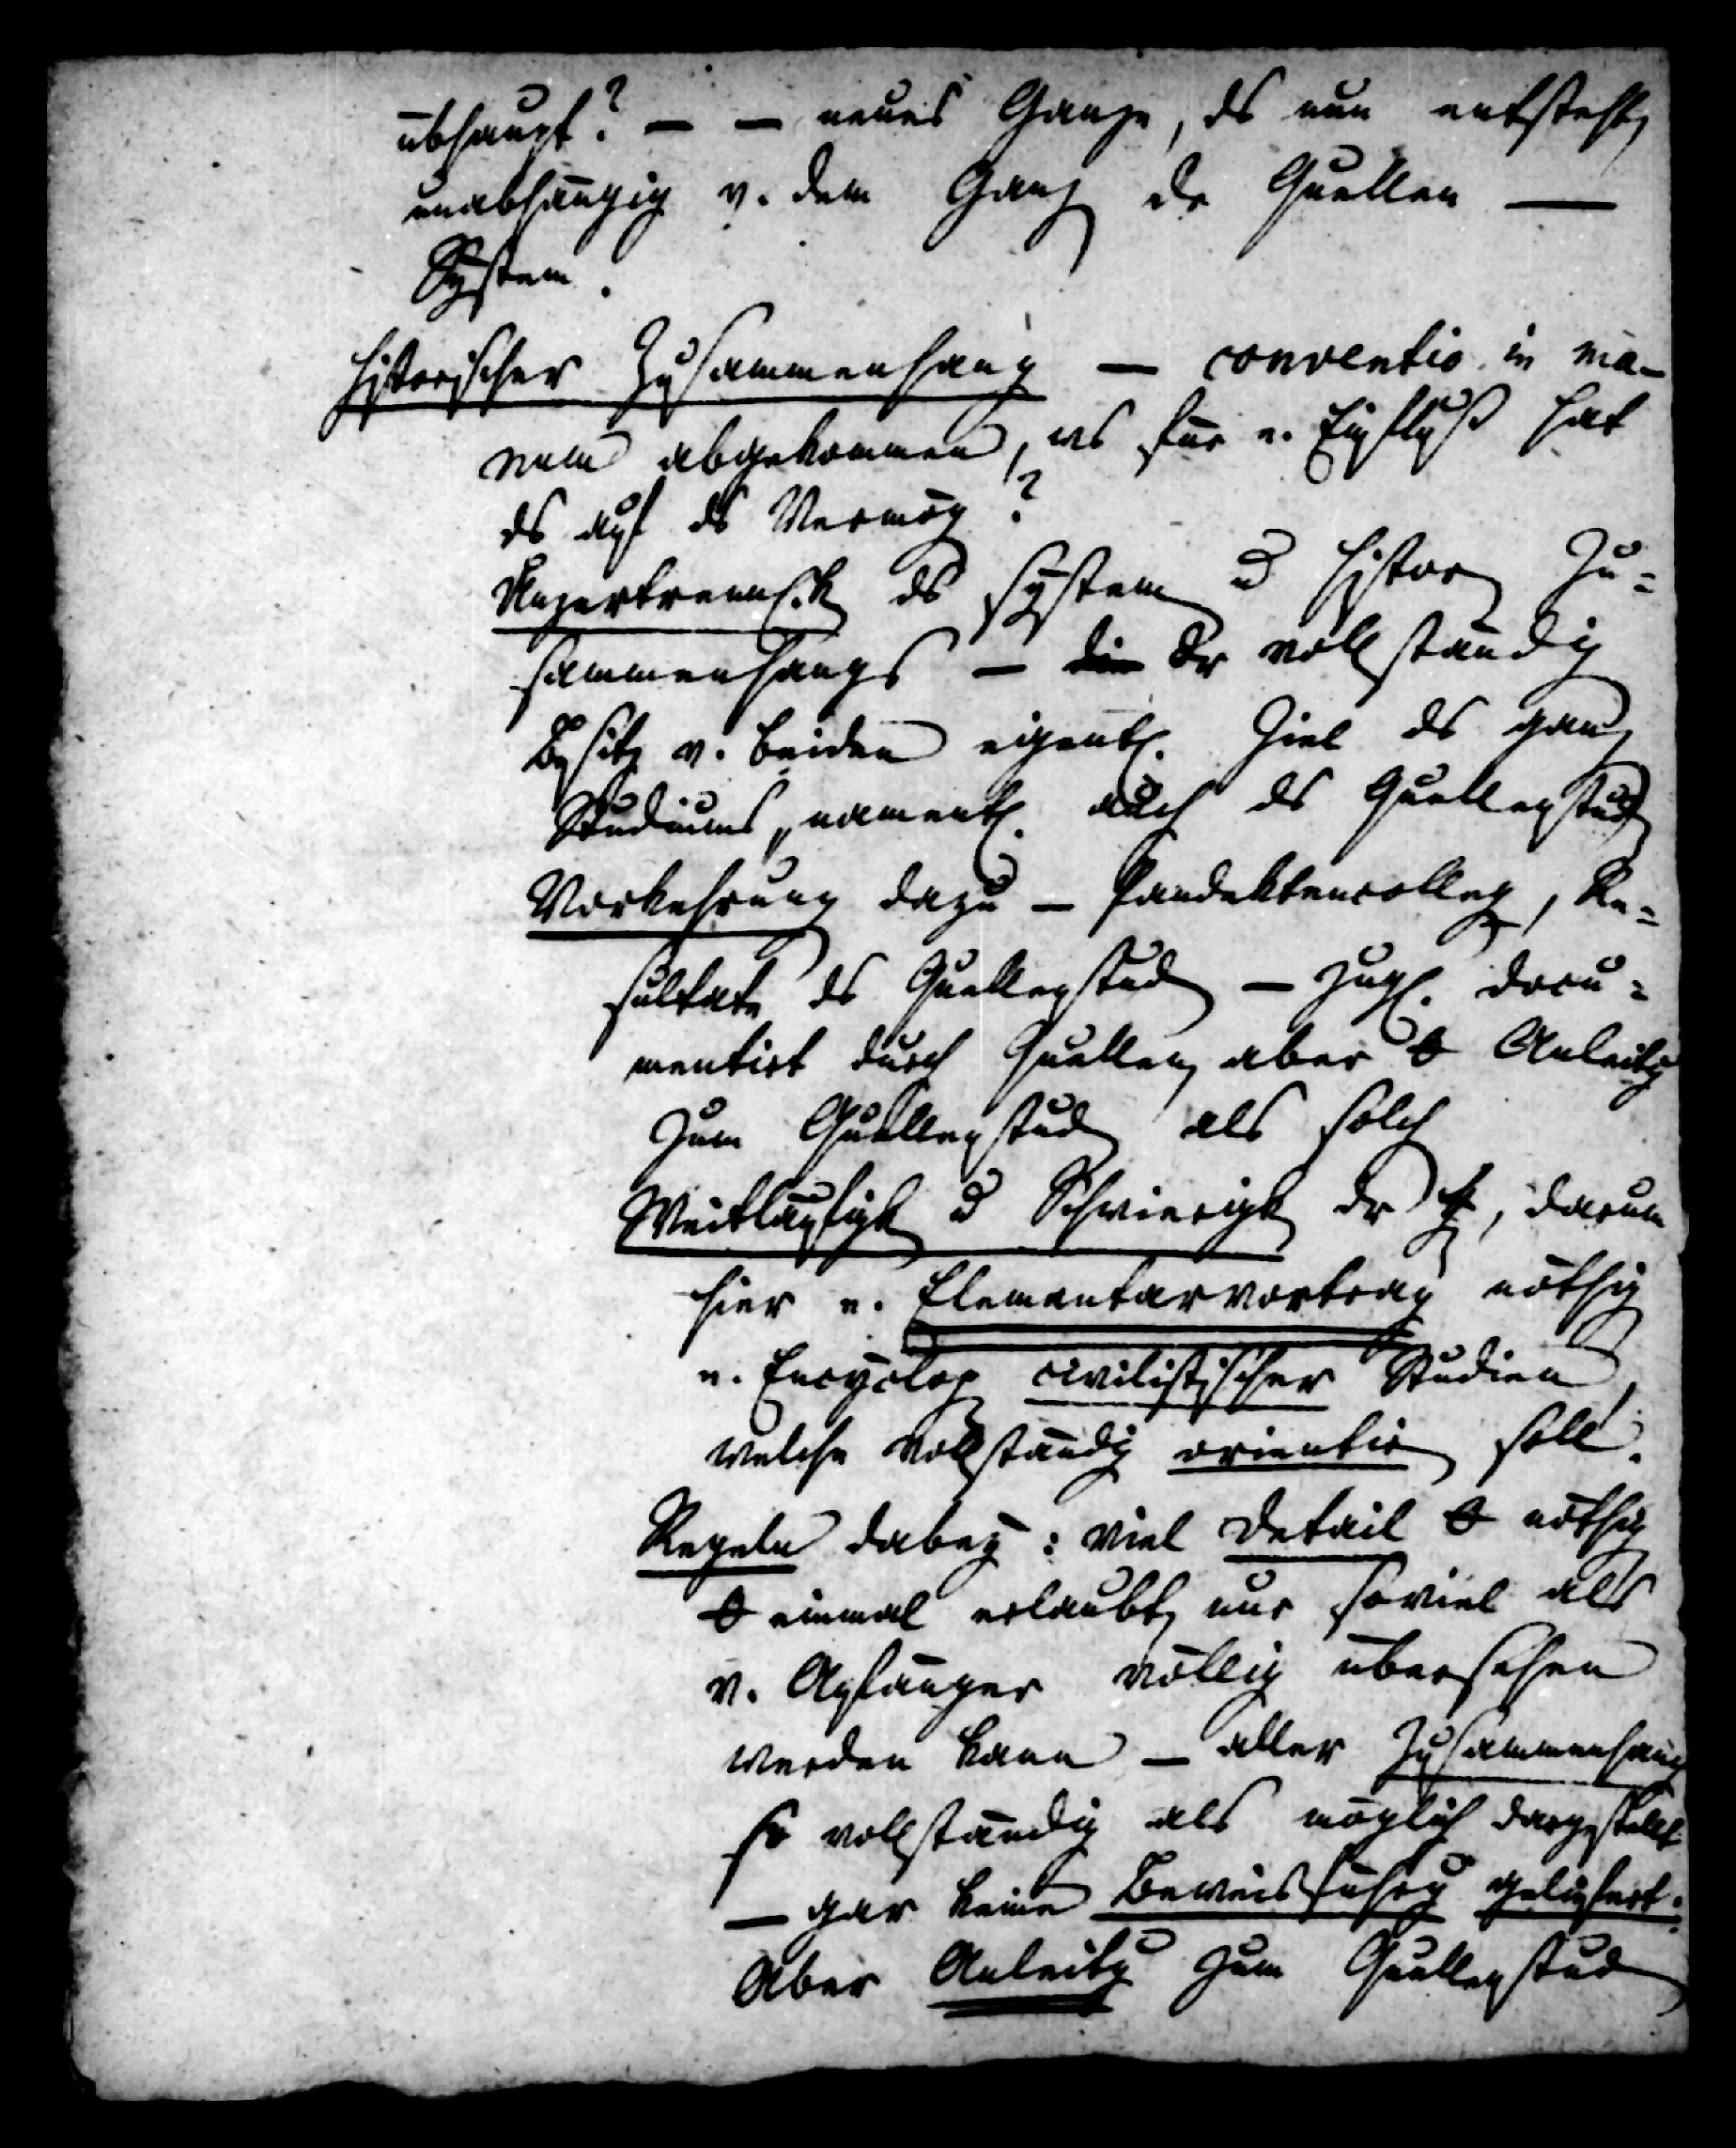 übhaupt? — — neues Ganze, ds nun entsteht,
unabhängig v. dem Gang der Quellen —
System.
historischer Zusammenhang — conventio in ma-
num abgekommen, was für e. Einfluß hat
ds auf ds Vermög?
Unzertrennlichk ds system u histor Zu=
sammenhangs — die Der vollständig
Besitz v. beiden eigentl. Ziel ds ganz
Studiums, namentl. auch ds Quellenstud
Vorkehrung dazu — Pandektencolleg, Re=
sultate ds Quellenstud — zugl. docu=
mentirt durch Quellen, aber Anleitg
zum Quellenstud als solch
Weitläufigk u Schwierigk der, darum
hier e. Elementarvortrag nöthig
e. Encyclop civilistischer Studien,
welche vollständig orientir soll.
Regeln dabey: viel Detail nöthig
einmal erlaubt, nur soviel als
v. Anfänger völlig übersehen
werden kann — aller Zusammenhang
so vollständig als möglich dargestellt
— gar keine Beweisführg geliefert.
Aber Anleitg zum Quellenstud